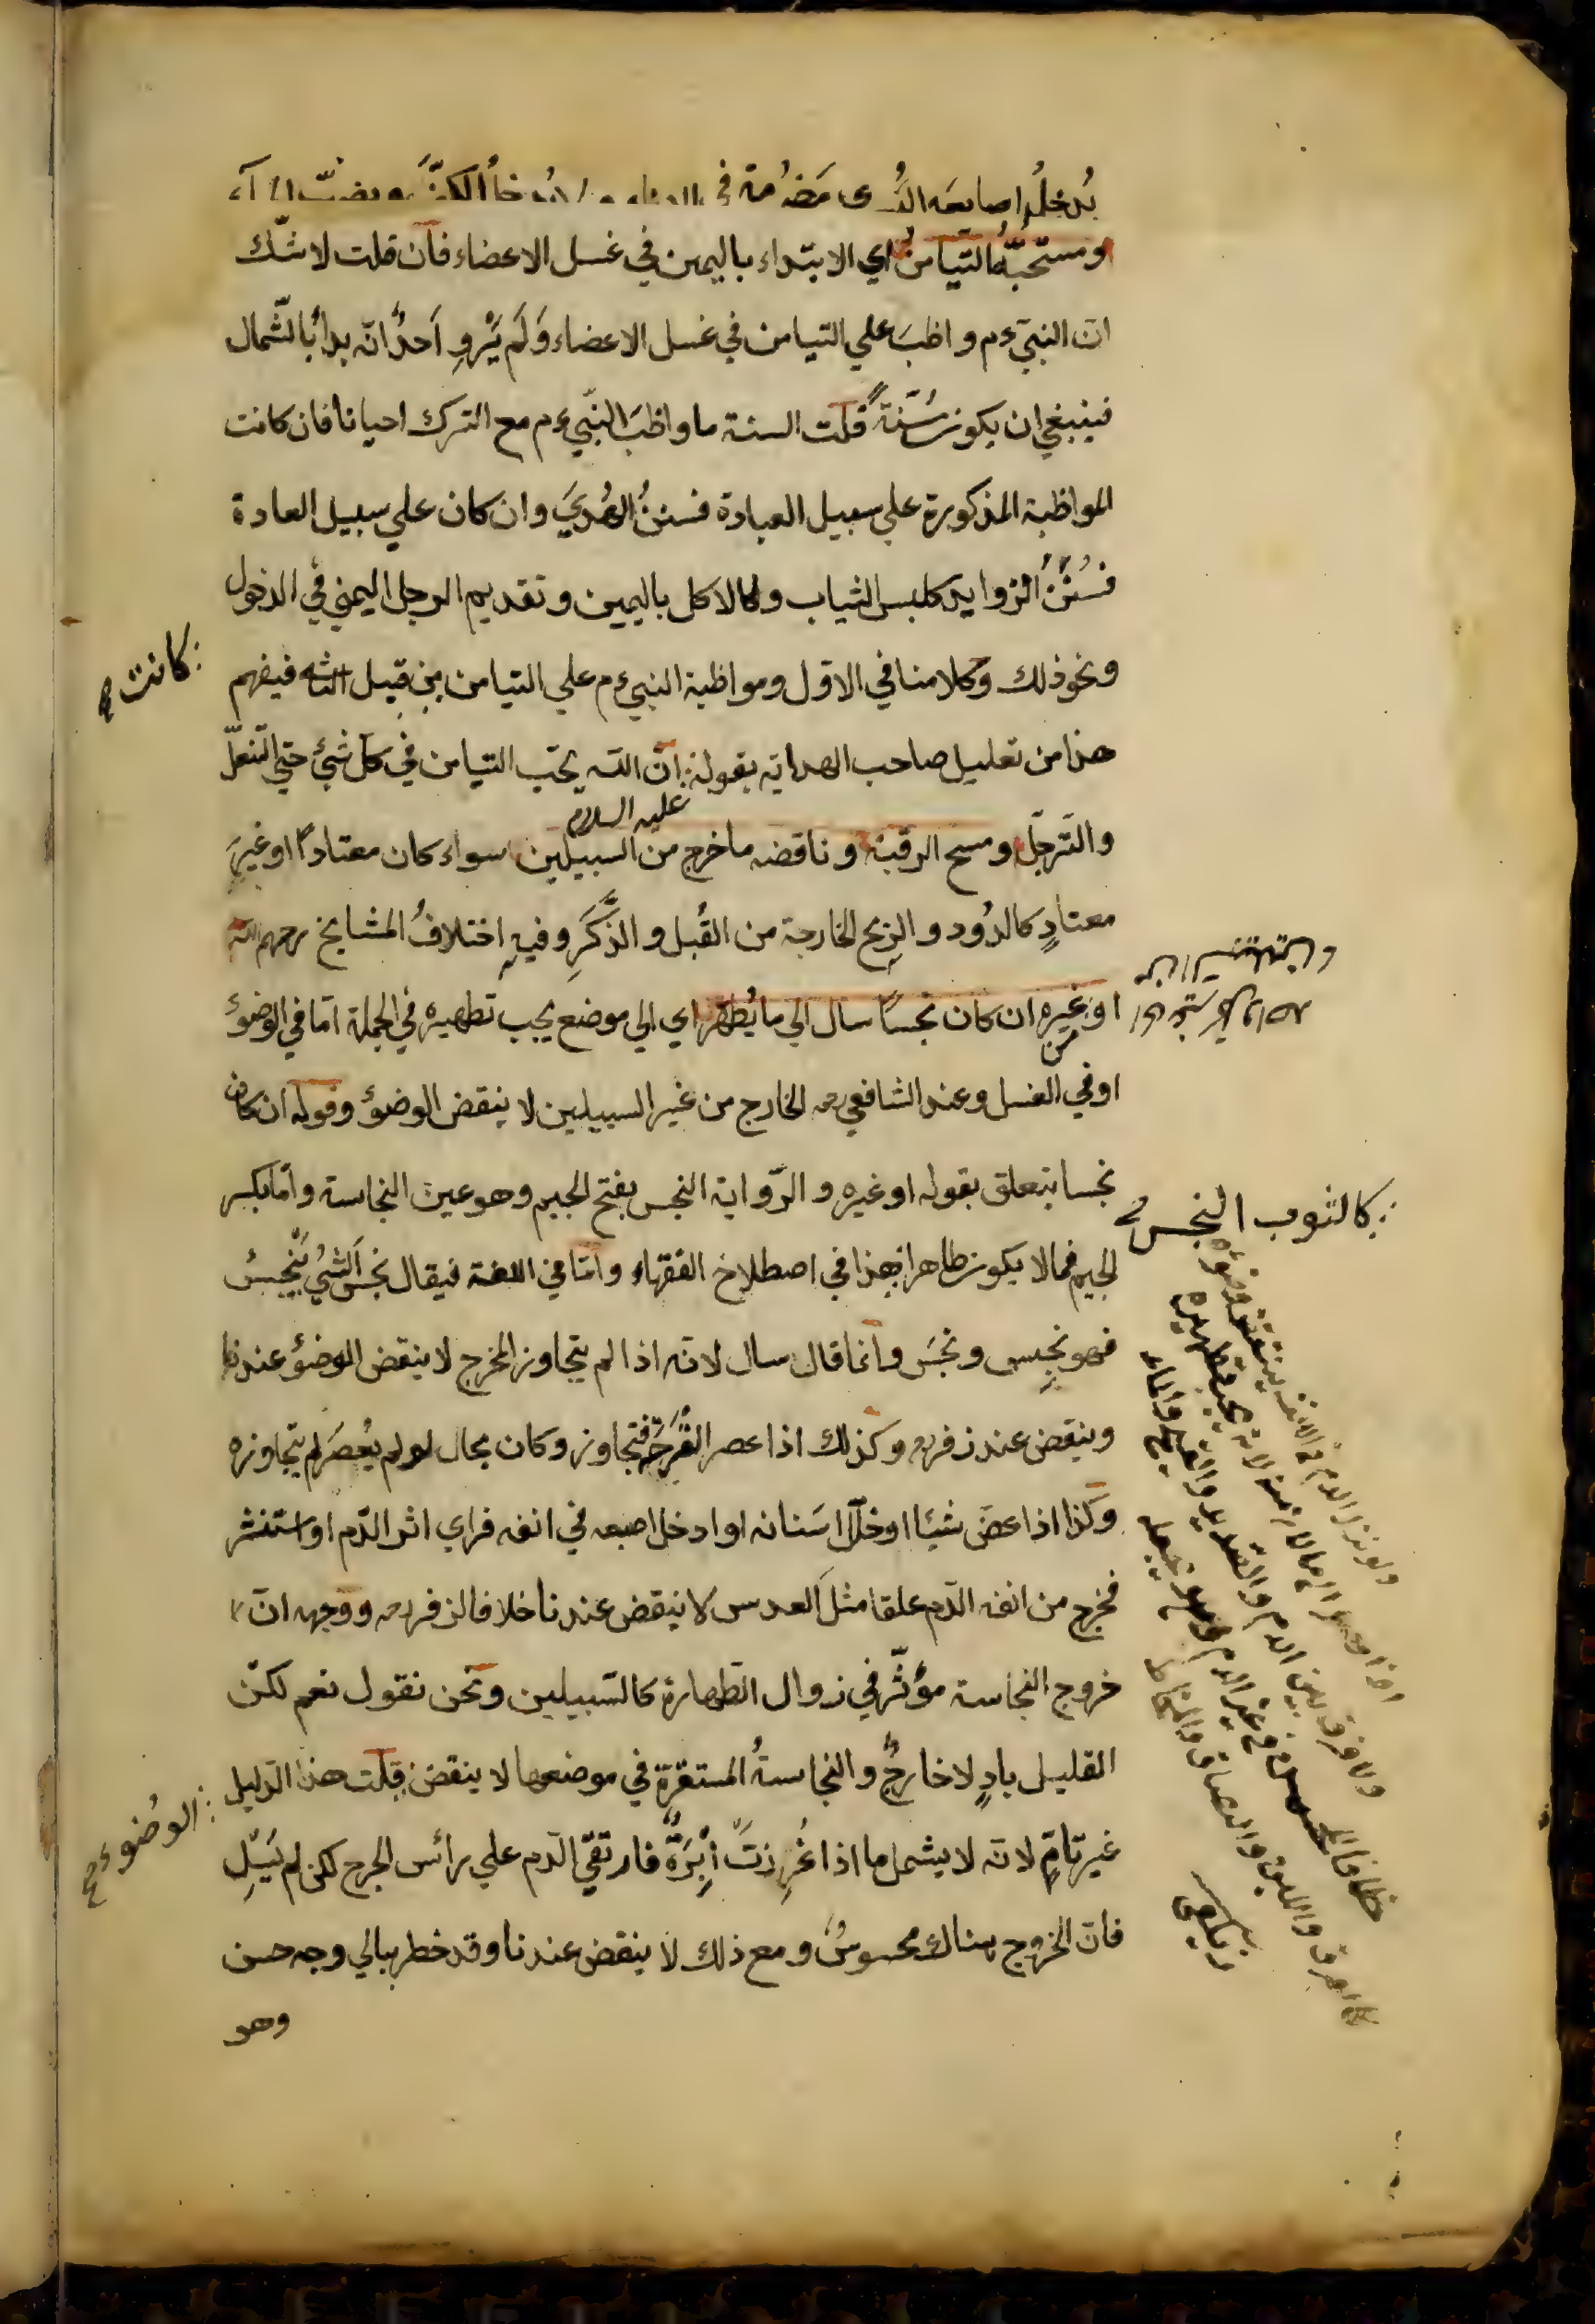 يُدخلُ اصابعَه اليُسرى مَضمُومة في الاناء ولا يُدخلُ الكفَّ ويصبّ الماء
ومستحبُّهُ التيامنُ اي الابتداء باليمين في غسل الاعضاء فان قلت لا شك
ان النبي ءم واظبَ علي التيامن في غسل الاعضاء وَلَم يَرْوِ اَحدٌ انّه بدأ بالشّمال
فينبغي ان يكون سُنّةً قلت السنة ما واظبَ النبّي ءم مع الترك احيانا فان كانت
المواظبة المذكورة علي سبيل العبادة فسننُ الهُديَ وان كان علي سبيل العادة
فسُنَنُ الزوايد كلبس الثياب والاكل باليمين وتقديم الرجل اليمني في الدخول
ونحو ذلك وكلامنا في الاوّل ومواظبة النبي ءم علي التيامن من قبيل الثاني فيفهم
هذا من تعليل صاحب الهداية بقوله ان الله يحب التيامن في كل شئ حتي التنعل
عليه السلام
والتّرجّل ومسح الرقبة وناقضه ما خرج من السبيلين سواء كان معتادا او غيرَ
معتادٍ كالدُود والريح الخارجة من القُبل والذَّكَرِ وفيهِ اختلافُ المشايخ رحمهم الله
او غيره ان كان نجسًا سال الي ما يُطهّر اي الي موضع يجب تطهيره في الجملة امّا في الوضوء
من
او في الغسل وعند الشافعي رحه الخارج من غير السبيلين لا ينقض الوضوء وقوله ان كان
نجسا يتعلق بقوله او غيره والرّواية النجس بفتح الجيم وهو عين النجاسة وامّا بكسر
الجيم فما لا يكون طاهرا فهذا في اصطلاح الفقهاء وامّا في اللغة فيقال نجس الشئُ ينجس
فهو نجِس ونجَس وانما قال سال لانّه اذا لم يتجاوز المخرج لا ينقض الوضوء عندنا
وينقض عند زفر رحه وكذلك اذا عصر القُرحَة فتجاوز وكان بحال لو لم يُعصَر لم يتجاوزه
وكذا اذا عضّ شيئا او خلّل اسَنانه او ادخل اصبعه في انفه فراي اثر الدّم او استنثر
فخرج من انفه الدّم علقا مثلَ العدس لا ينقض عندنا خلافا لزفر رحه ووجهه انّ
خروج النجاسة مؤثّر في زوال الطهارة كالسّبيلين ونحن نقول نعم لكنّ
القليل بادٍ لا خارجٌ والنجاسةُ المستقرة في موضعها لا ينقض قلت هذا الدليل
غير تامٍّ لانّه لا يشمل ما اذا غُرِزتَ أِبْرَةٌ فارتقي الدّم علي رأس الجرح لكن لم يَسِل
فان الخروج هناك محسوسٌ ومع ذلك لا ينقض عندنا وقد خطر ببالي وجه حسن
وهو
كانت
كالثوب النجس
الوضوء صح